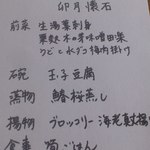 卯月懐石
前菜 生湯葉刺身
粟麩 木の芽味噌田楽
うどと水ダコ梅肉掛け
碗 玉子豆腐
蒸物 鰆桜蒸し
揚物 ブロッコリー海老真薯
食事 筍ごはん